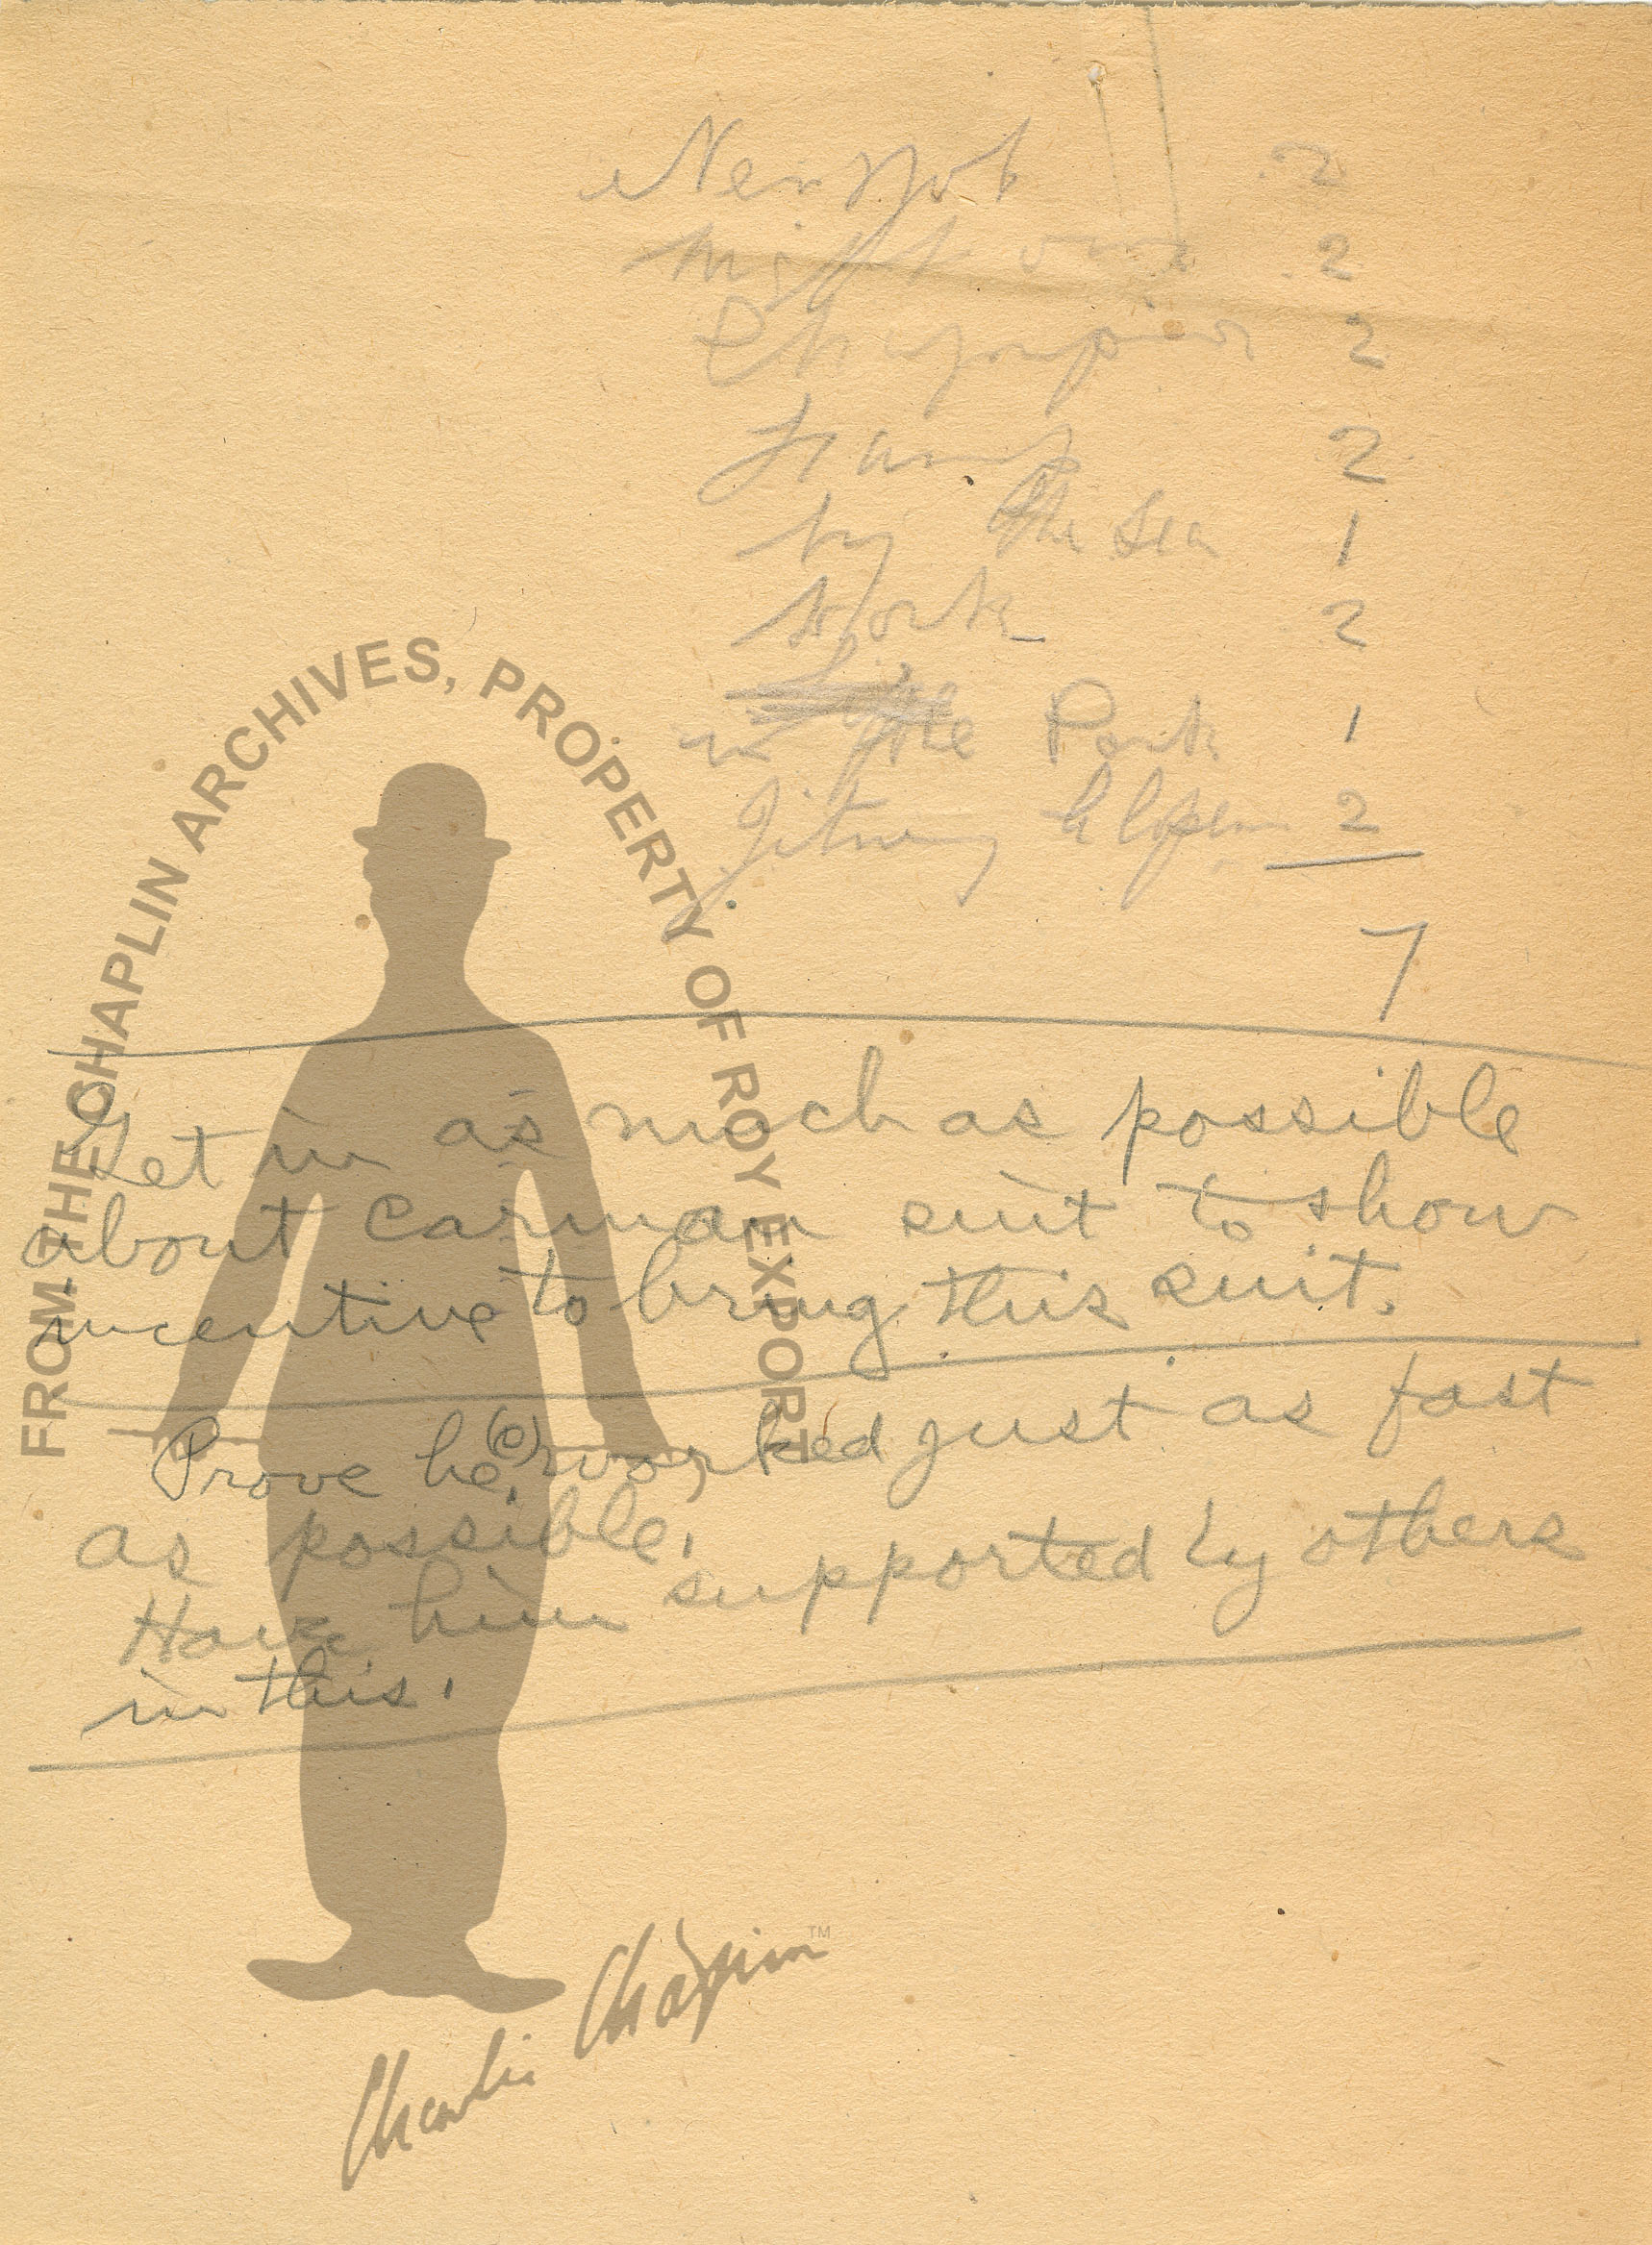 New Job 2
Night out 2
Champion 2
Tramp 2
by the Sea 1
Work 2
in the Park 1
Jitney Elopem 2
7
Get in as much as possible
about Carman suit to show
incentive to bring this suit.
Prove he (C) worked just as fast
as possible.
Have him supported by others
in this.
FROM THE CHAPLIN ARCHIVES, PROPERTY OF ROY EXPORT
Charlie Chaplin™